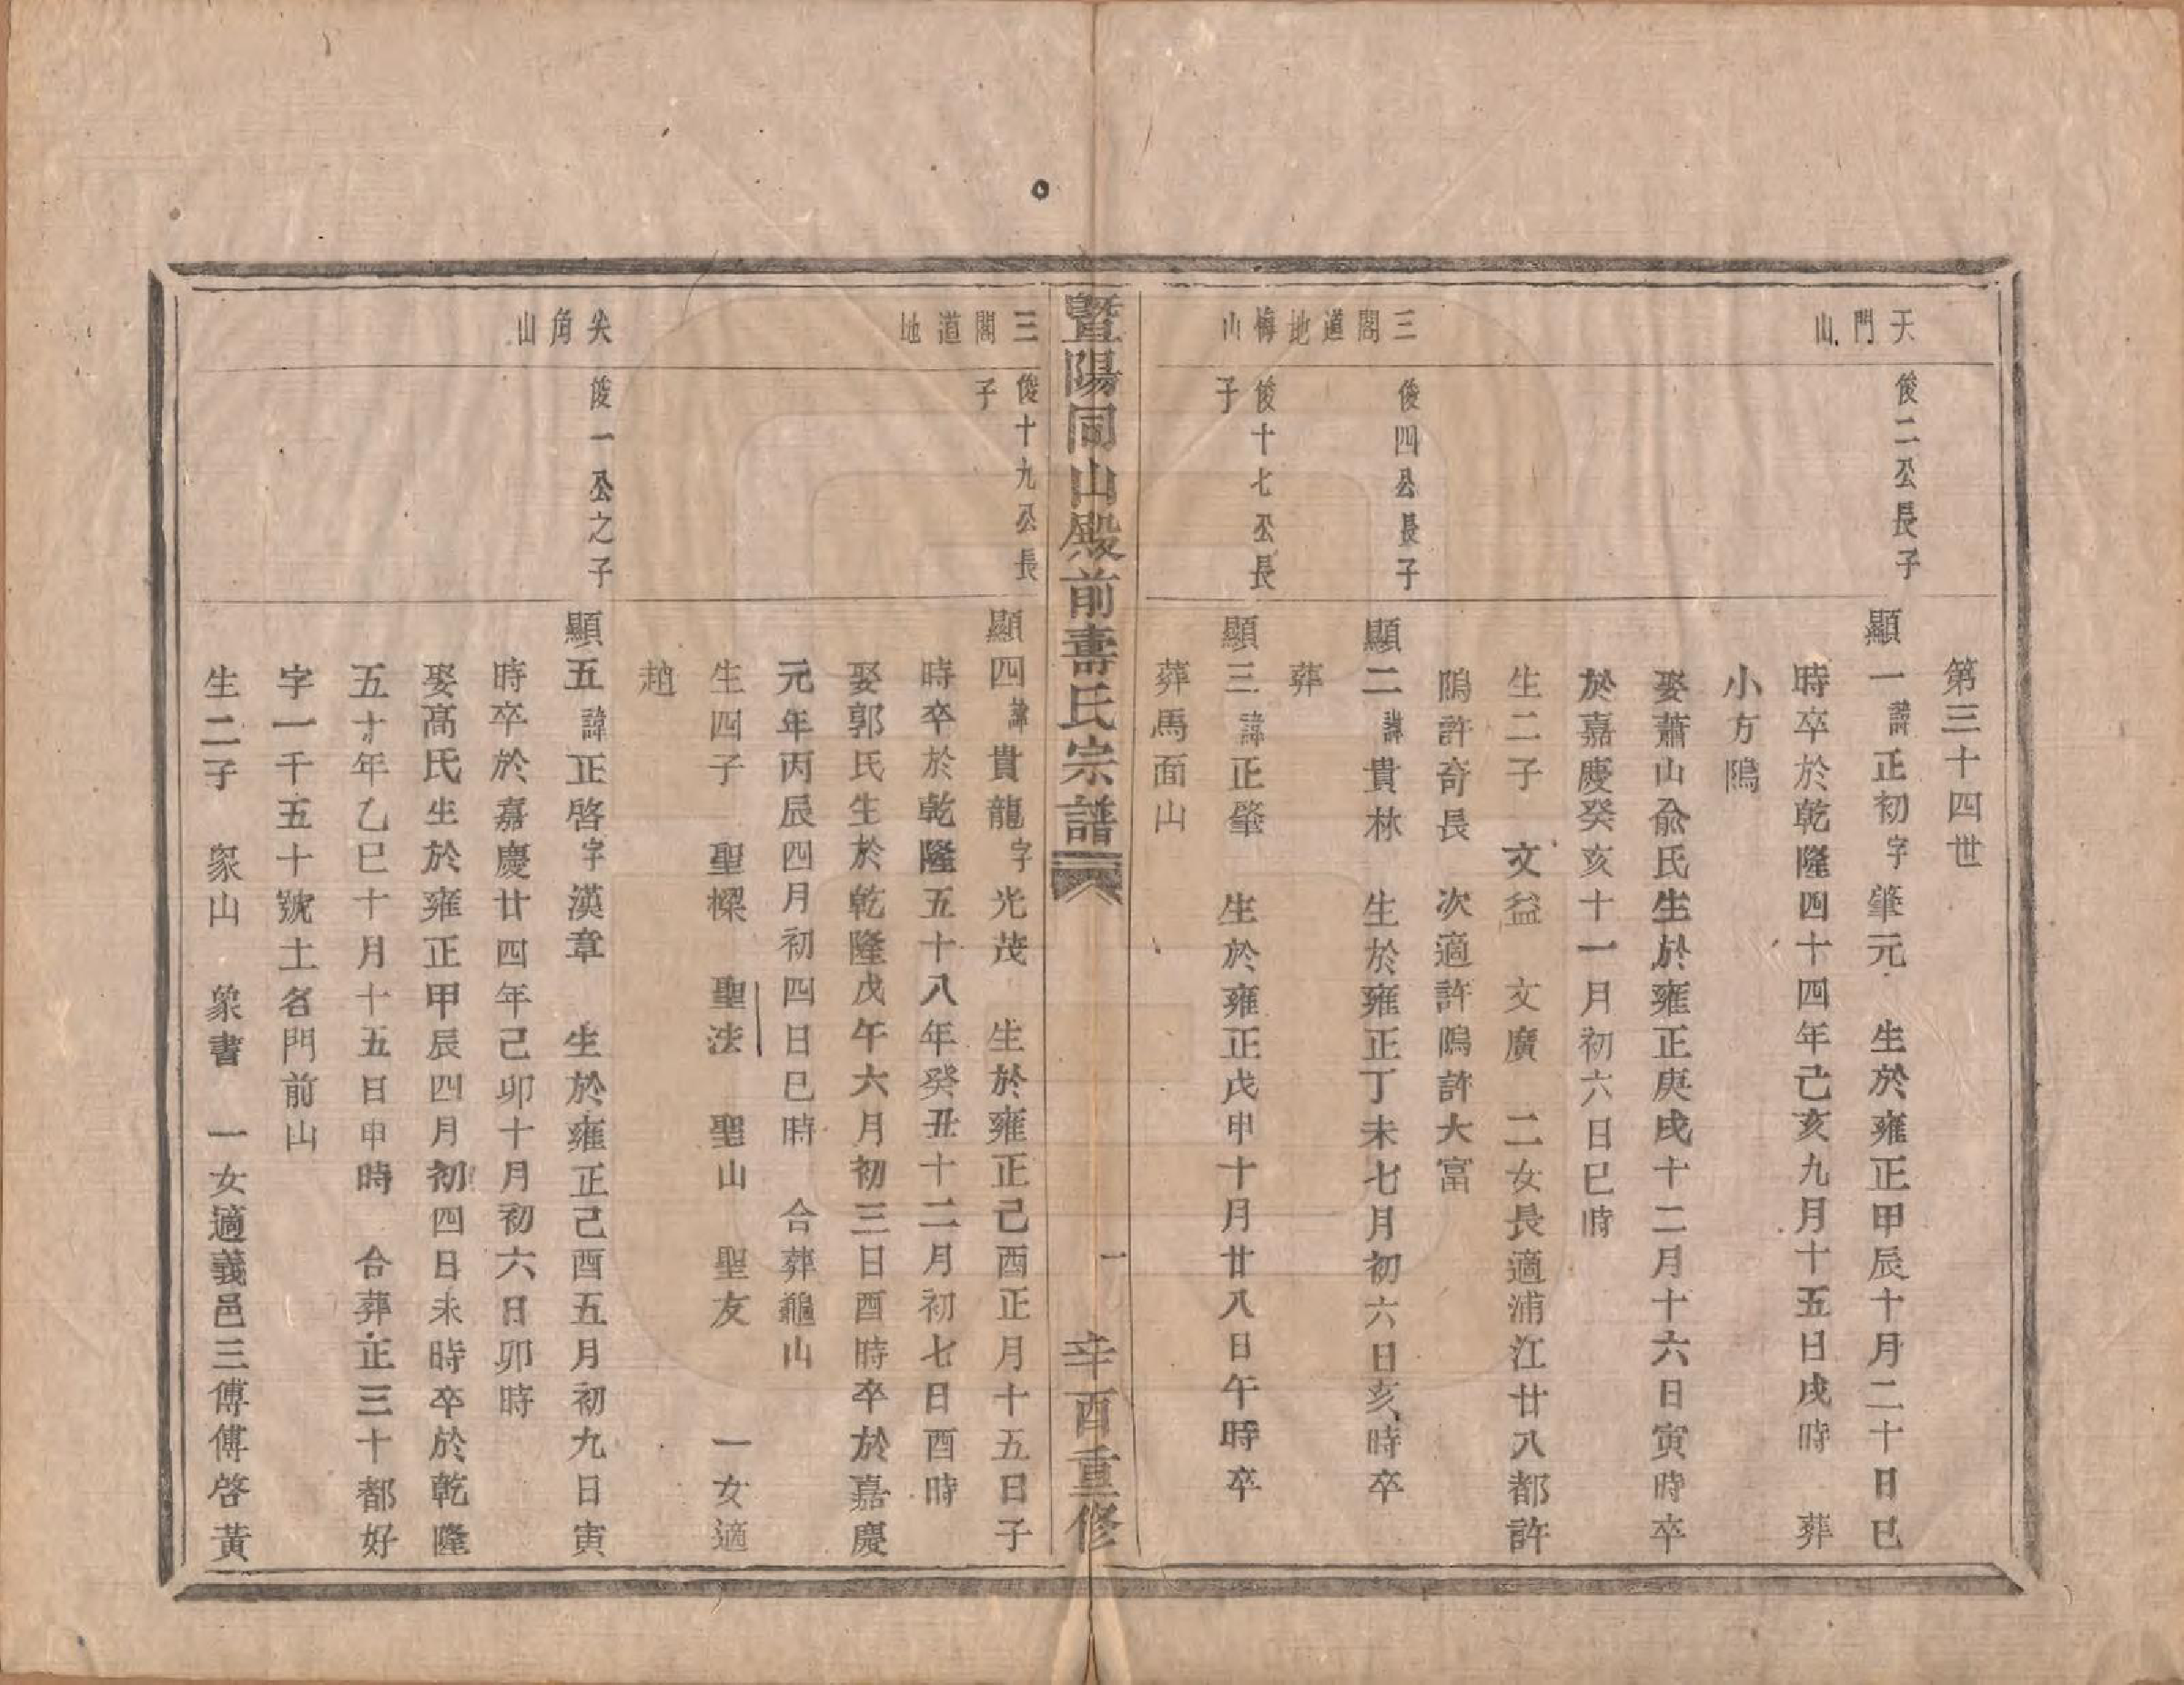 第三十四世
天門山
俊二公長子
顯一諱正初字肇元 生於雍正甲辰十月二十日巳
時卒於乾隆四十四年己亥九月十五日戌時 葬
小方隖
娶蕭山俞氏生於雍正庚戌十二月十六日寅時卒
於嘉慶癸亥十一月初六日巳時
生二子 文益 文廣 二女長適浦江廿八都許
隖許奇長 次適許隖許大富
三閣道地梅山
俊四公長子
顯二諱貴林 生於雍正丁未七月初六日亥時卒
葬
俊十七公長
子
顯三諱正肇 生於雍正戊申十月廿八日午時卒
葬馬面山
暨陽同山殿前壽氏宗譜 一 辛酉重修
三閣道地
俊十九公長
子
顯四諱貴龍字光茂 生於雍正己酉正月十五日子
時卒於乾隆五十八年癸丑十二月初七日酉時
娶郭氏生於乾隆戊午六月初三日酉時卒於嘉慶
元年丙辰四月初四日巳時 合葬龜山
生四子 聖樑 聖法 聖山 聖友 一女適
趙
尖角山
俊一公之子
顯五諱正啓字漢章 生於雍正己酉五月初九日寅
時卒於嘉慶廿四年己卯十月初六日卯時
娶高氏生於雍正甲辰四月初四日未時卒於乾隆
五十年乙巳十月十五日申時 合葬正三十都好
字一千五十號土名門前山
生二子 象山 象書 一女適義邑三傅傅啓黃